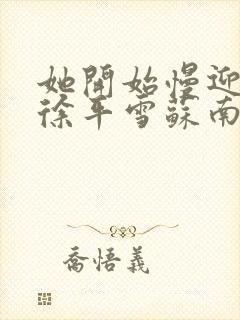 她開始慢迎
徐平雪蘇南
喬悟義